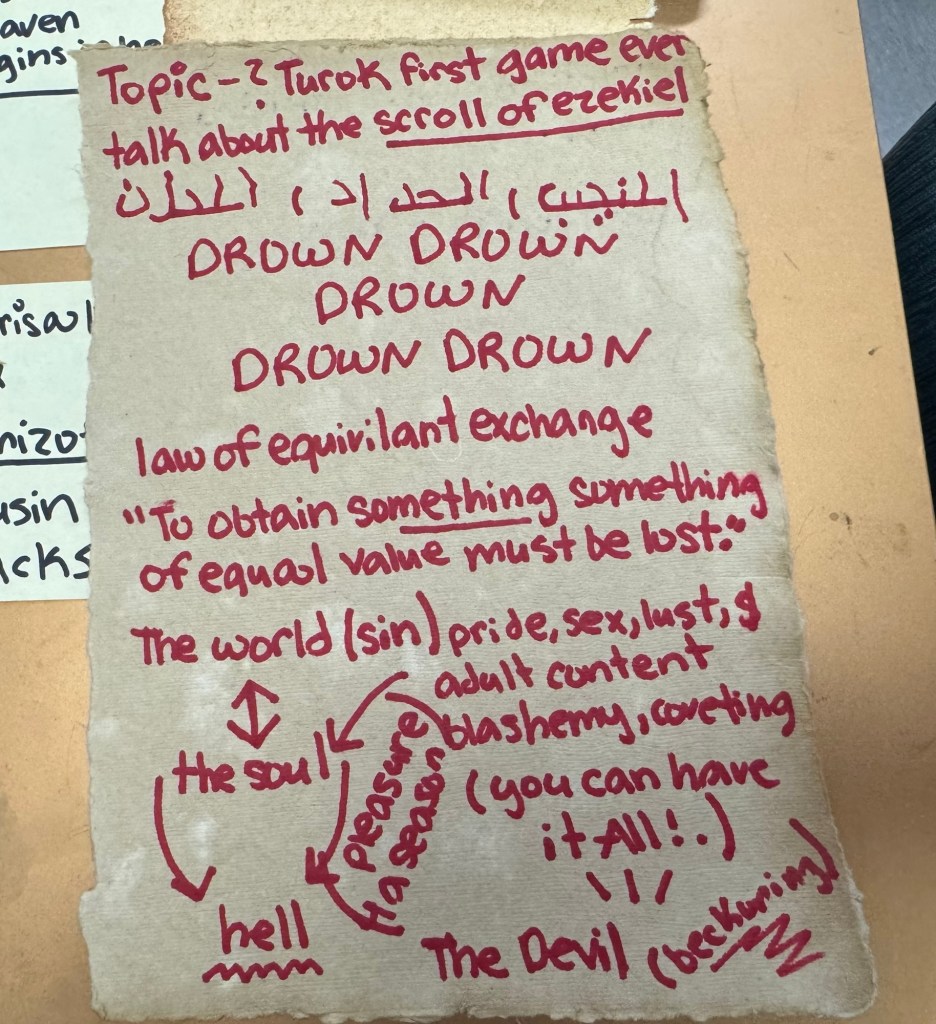 aven
gins
Topic-? Turok first game ever
talk about the scroll of ezekiel
المنجبب, الحداد,
DROWN DROWN
DROWN
DROWN DROWN
law of equivilant exchange
"To obtain something something
of equal value must be lost."
The world (sin) pride, sex, lust, $
adult content
blashemy, coveting
the soul
Pleasure
4 a season
(you can have
it All!.)
hell
The Devil (beckoning)
risa
nizo
usin
icks